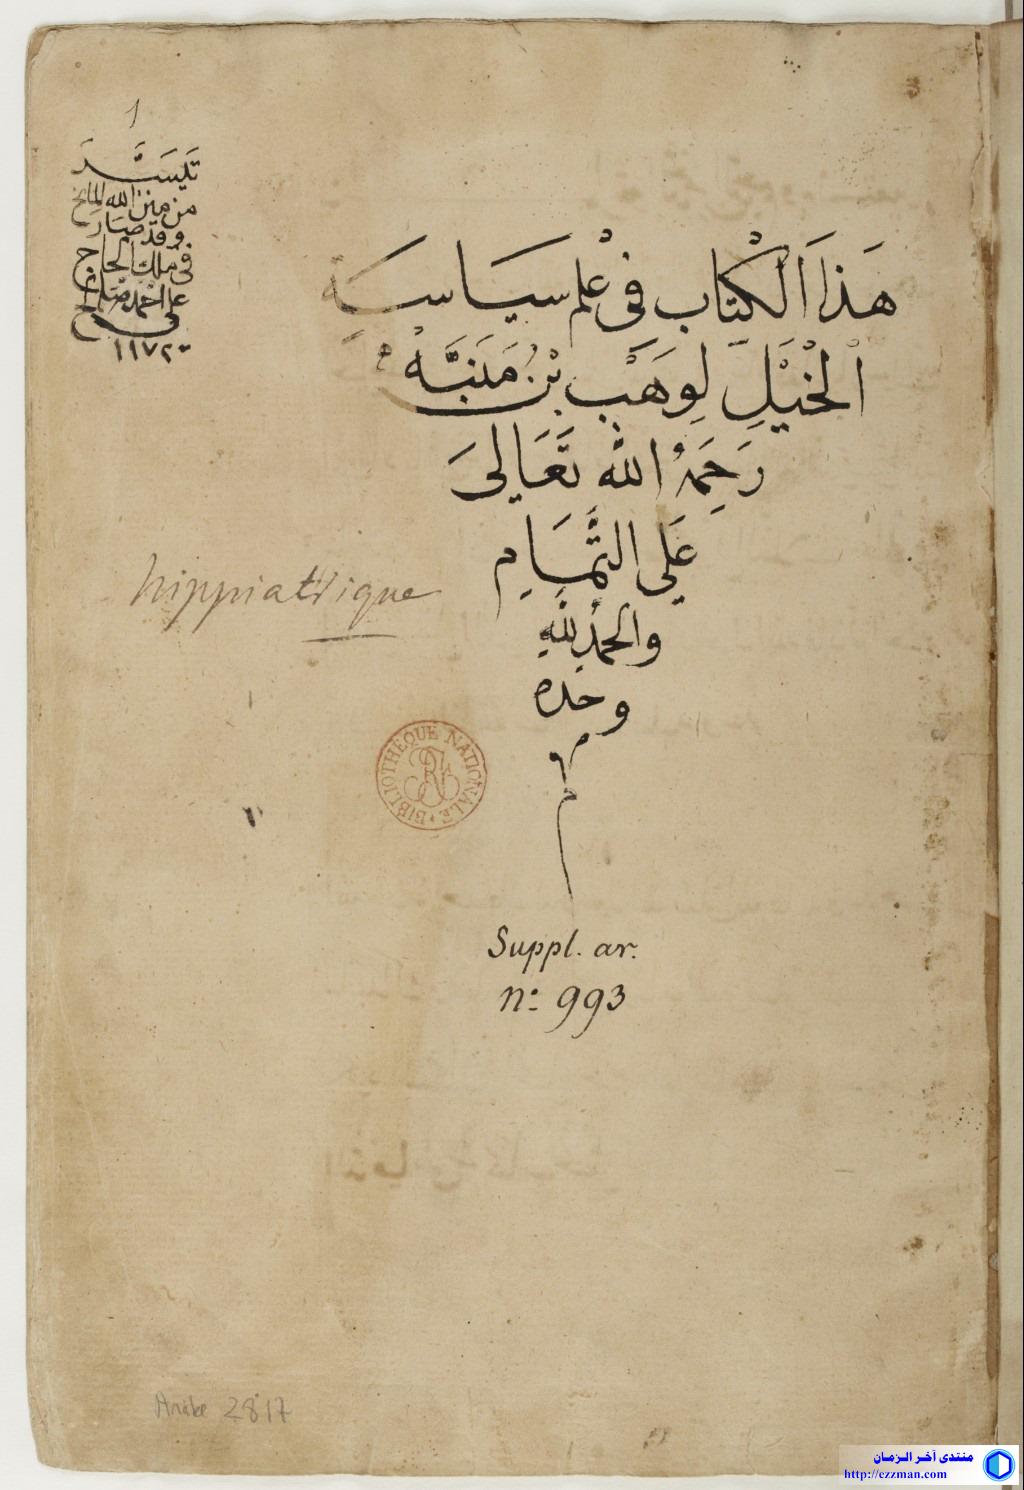 1
تيسر
من منن الله المانح
وقد صار
في ملك الحاج
علي احمد صالح
١١٧٢
هَذَا الْكِتَاب فى عْلم سيَاسَة
اْلخْيَل لِوهَبْ بْن مَنَبَّهْ
رَحِمَهُ الله تَعَالىَ
عَلى التَّمَام
والحمْدُ للهِ
وحده
م
hippiatrique
BIBLIOTHÈQUE NATIONALE
Suppl. ar.
n: 993
Arabe 2817
منتدى آخر الـزمـان
http://ezzman.com